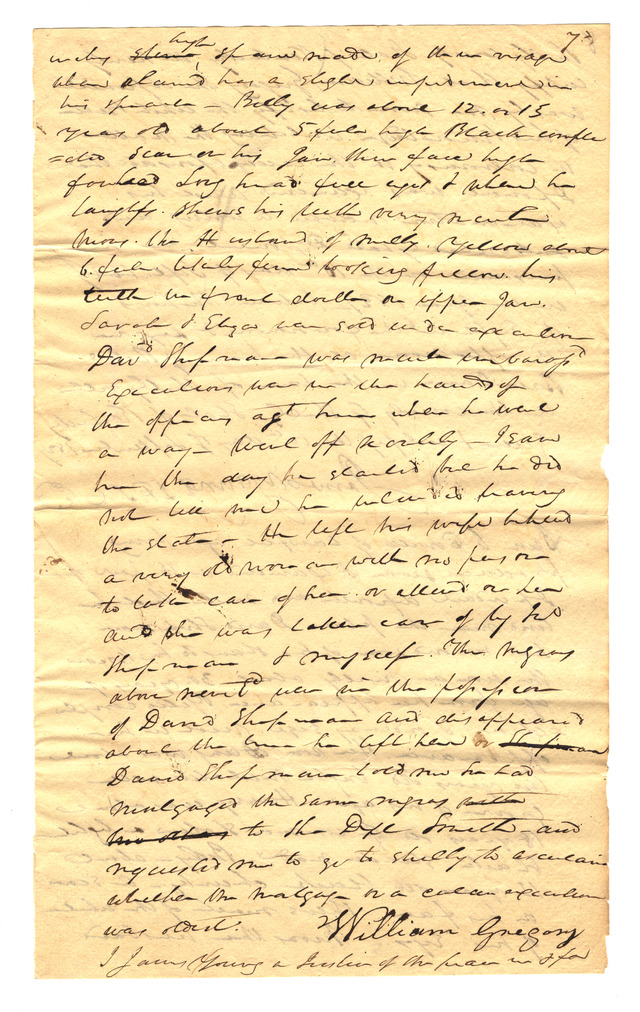 7
inches high, spare made of thin visage
when alarmed has a slight impediment in
his speech – Billy was about 12 or 15
years old about 5 feet high Black comple
=cted Scar on his Jaw, thin face high
forehead Long head full eyes & when he
laughs. shews his teeth very much
Mose. the Husband of Milly. Yellow about
6. feet likely fine looking fellow. his
teeth in front double on upper Jaw.
Sarah & Eliza were sold under execution
David Shipman was much embarassd
Executions were in the hands of
the officers agt him when he went
a way – Went off secretly – I saw
him the day he started but he did
not tell me he intended leaving
the state – He left his wife behind
a very old woman with no person
to take care of her or attend on her
and she was taken care of by
Shipman & myself. The negroes
above ment'd were in the possession
of David Shipman and disappeared
about the time he left here or Shipman
David Shipman told me he had
mortgaged the same negroes with
two others to the Deft Smith – and
requested me to go to Shelby to ascertain
whether the mortgage or a certain execution
was oldest.
William Gregory
I James Young a Justice of the peace in & for